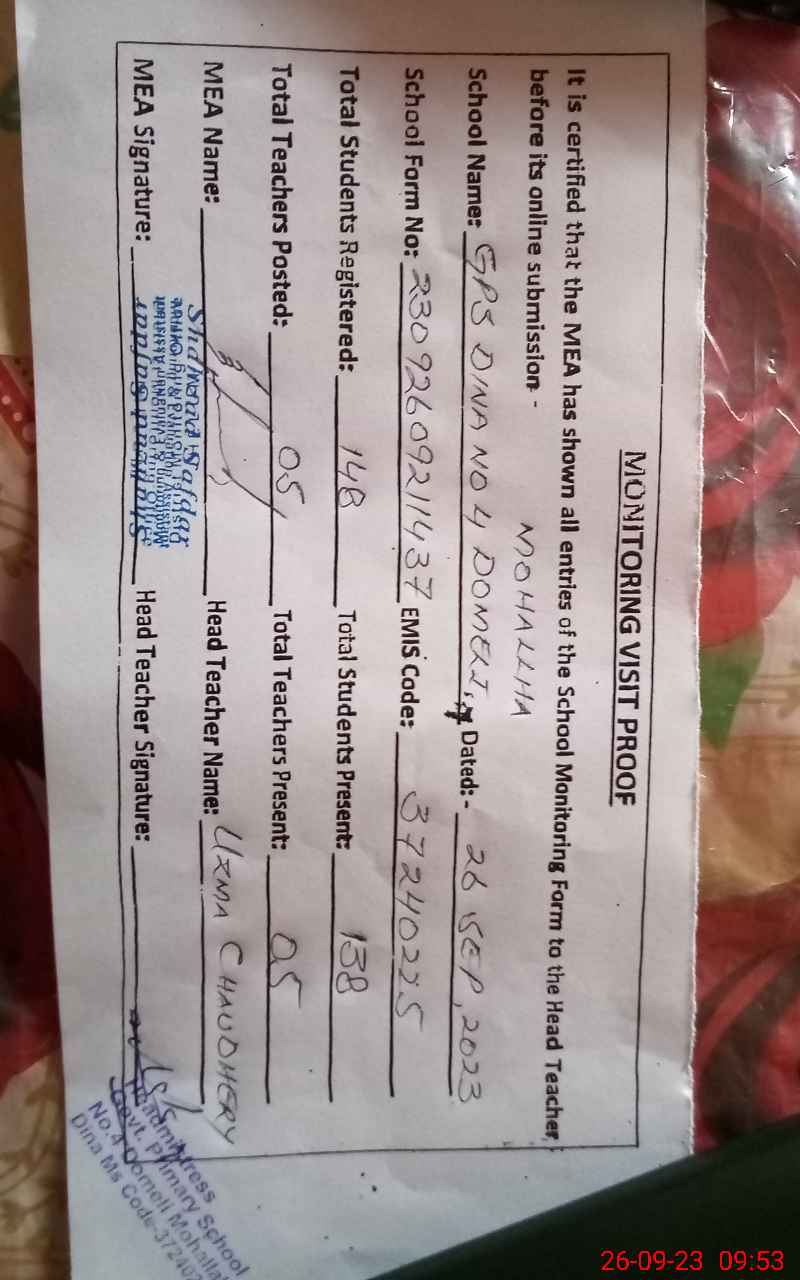 MONITORING VISIT PROOF
It is certified that the MEA has shown all entries of the School Monitoring Form to the Head Teacher,
before its online submission -
MOHALLHA
School Name: GPS DINA NO 4 DOMELI, Dated: - 26 SEP, 2023
School Form No: 23092609211437 EMIS Code: 37240225
Total Students Registered: 148 Total Students Present: 138
Total Teachers Posted: 05 Total Teachers Present: 05
MEA Name: Head Teacher Name: UZMA CHAUDHERY
Safdar
MEA Signature: Head Teacher Signature:
Headmistress
Govt. Primary School
No.4 Domeli Mohallah
Dina Ms Code-37240
26-09-23 09:53